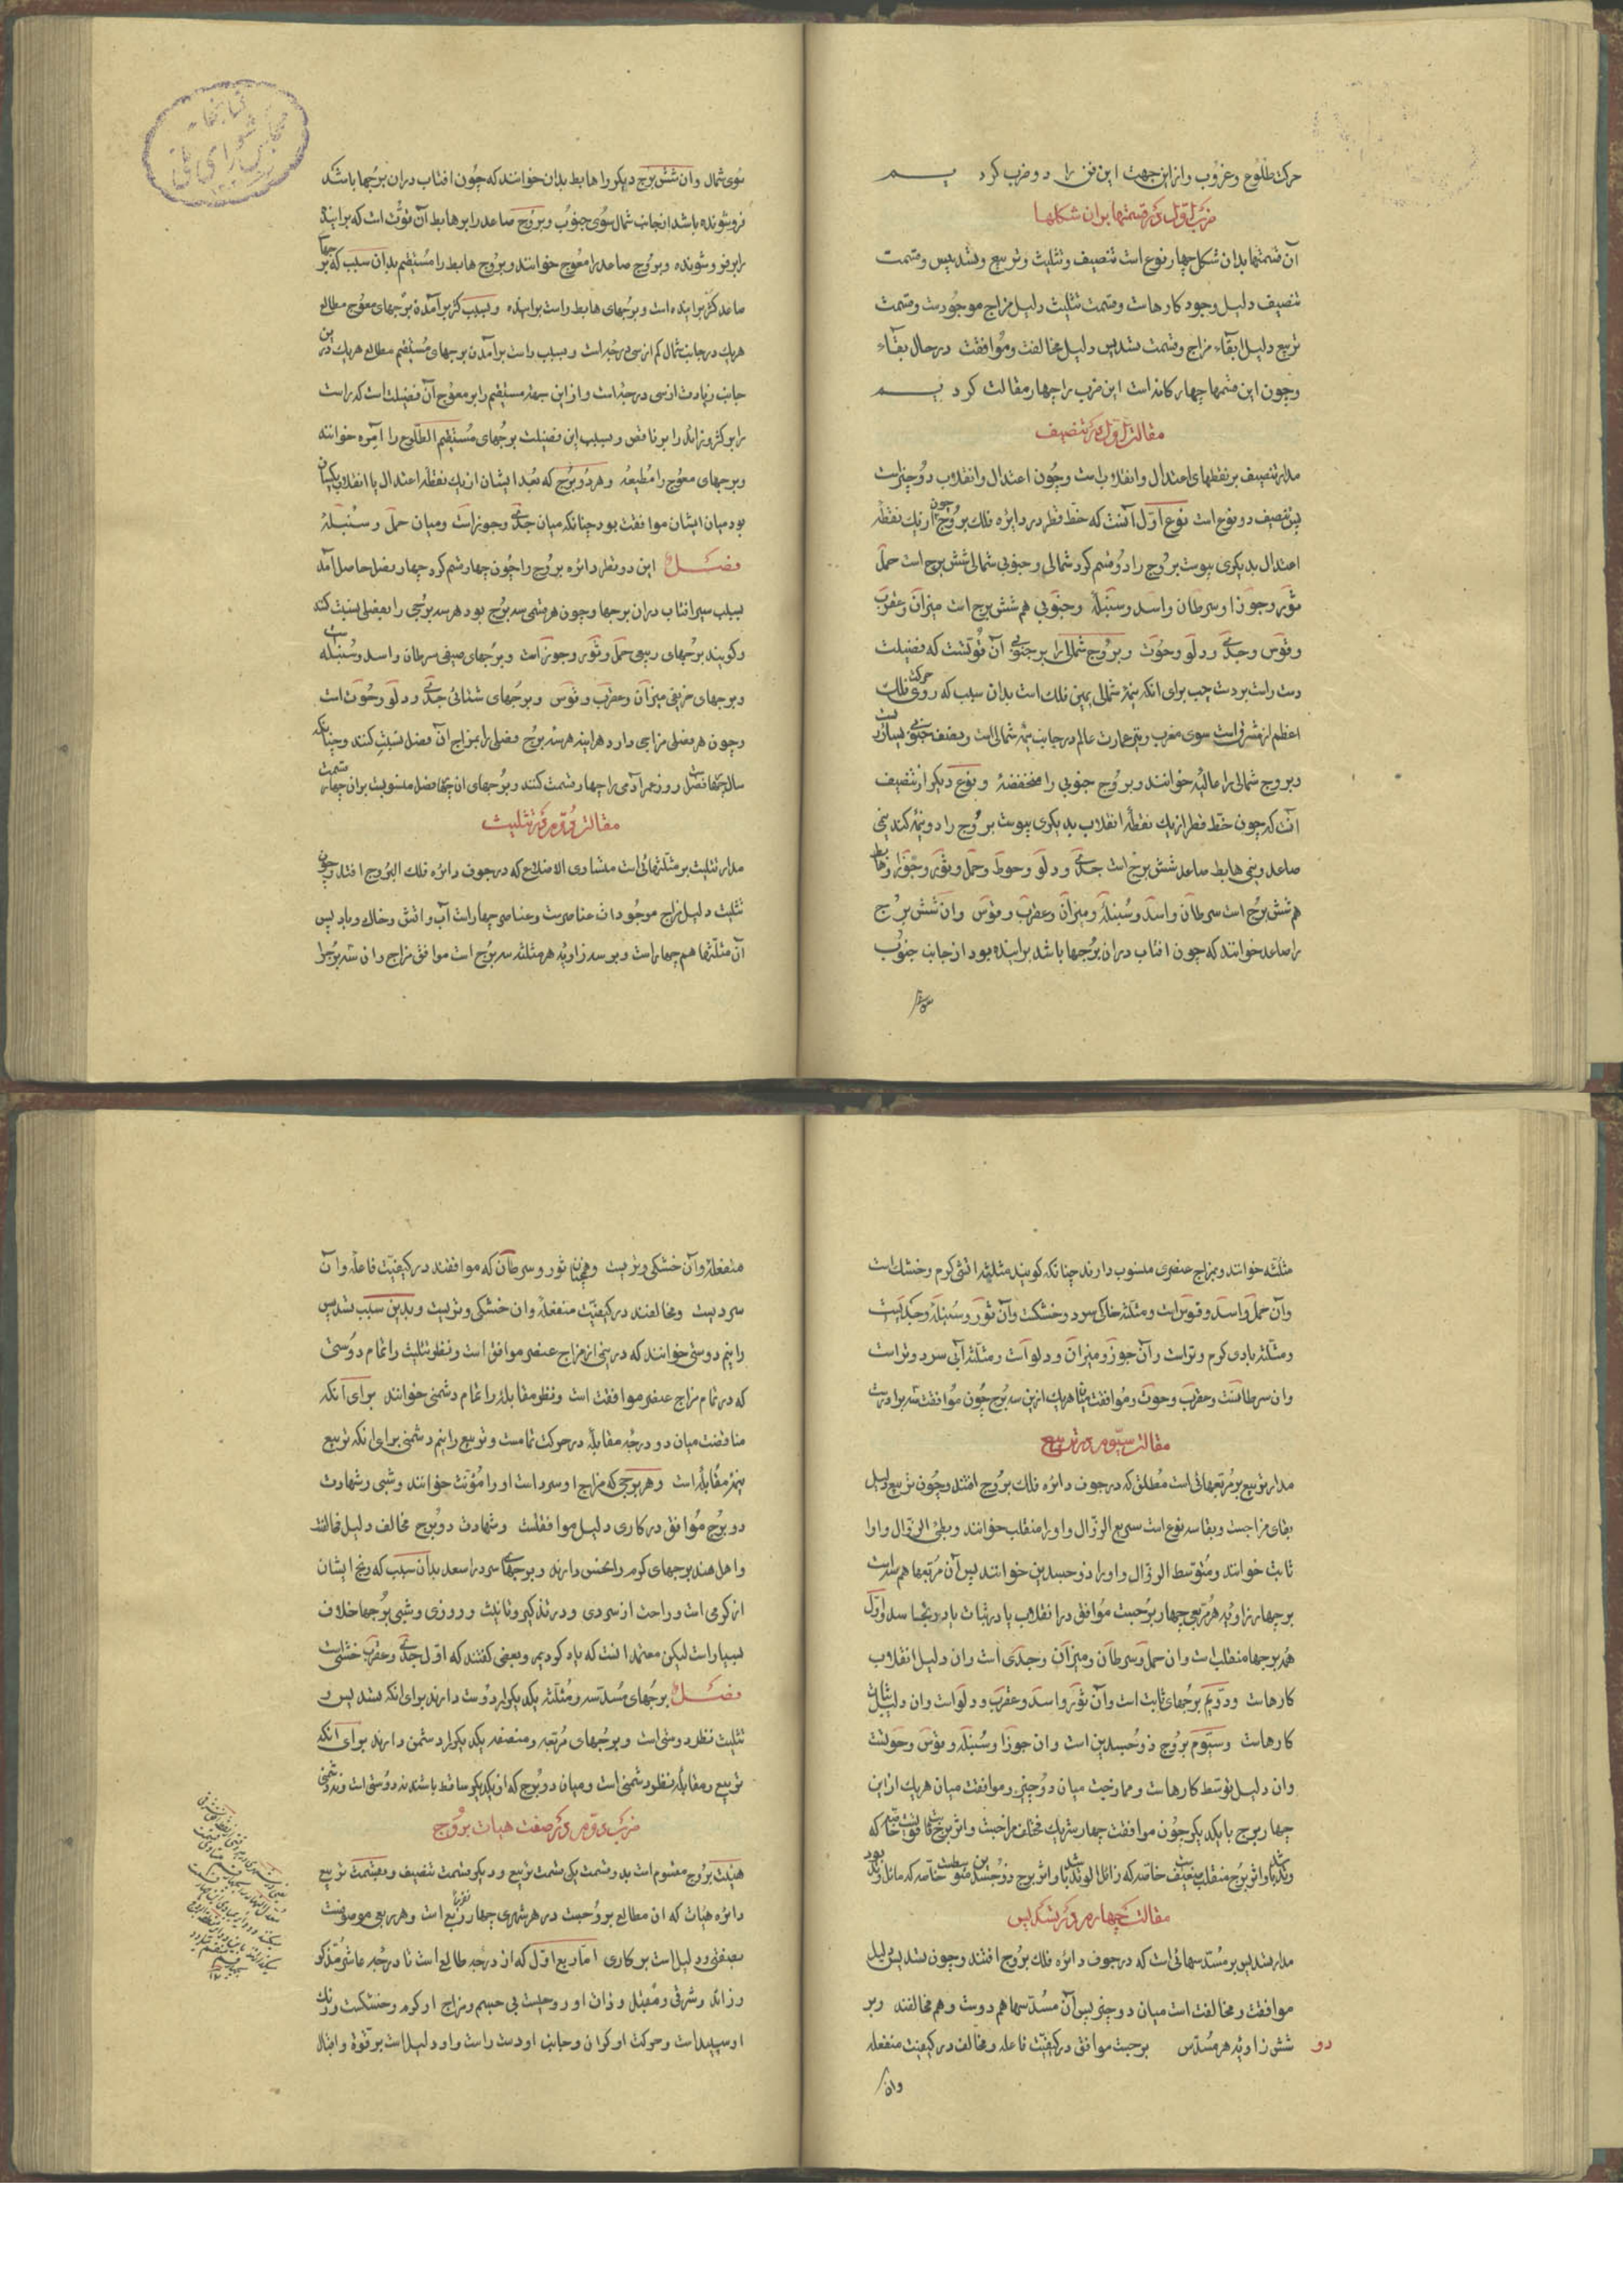 حرکت طلوع و غروب و از این جهت این فن را دو ضرب کردیم
ضرب اول در قسمتها بران شکلها
آن قسمتها بدان شکل چهار نوع است تنصیف و تثلیث و تربیع و تسدیس و قسمت
تنصیف دلیل وجود کارهاست و قسمت تثلیث دلیل مزاج موجودست و قسمت
تربیع دلیل ابقاء مزاج و قسمت تسدیس دلیل مخالفت و موافقت در حال بقاء
و چون این قسمتها چهارکانه است این ضرب را چهار مقالت کردیم
مقالت اول در تنصیف
مدار تنصیف بر نقطهای اعتدال و انقلاب است و چون اعتدال و انقلاب دو چیز است
پس تنصیف دو نوع است نوع اول آنست که خط قطر در دایره فلک بروج چون از یک نقطه
اعتدال بدیکری پیوست بروج را دو قسم کرد شمالی و جنوبی شمالی شش برج است حمل
ثور و جوزا و سرطان و اسد و سنبله و جنوبی هم شش برج است میزان و عقرب
و قوس و جدی و دلو و حوت و بروج شمالی را بر جنوبی آن قوتست که فضیلت
دست راست بر دست چپ برای انکه نیمه شمالی یمین فلک است بدان سبب که روی حرکت فلک
اعظم از مشرق است سوی مغرب و نیز عمارت عالم در جانب نیمه شمالی است و نصف جنوبی یسارست
و بروج شمالی را عالیه خوانند و بروج جنوبی را منخفضه و نوع دیکر از تنصیف
آنست که چون خط قطر از یک نقطه انقلاب بدیکری پیوست بروج را دو نیمه کند نیمی
صاعد و نیمی هابط صاعد شش برج است جدی و دلو و حوت و حمل و ثور و جوزا و هابط
هم شش برج است سرطان و اسد و سنبله و میزان و عقرب و قوس وان شش برج
را صاعد خوانند که چون افتاب دران برجها باشد براینده بود از جانب جنوب
سوی
سوی شمال وان شش برج دیکر را هابط بدان خوانند که چون افتاب دران برجها باشد
فروشونده باشد از جانب شمال سوی جنوب و بروج صاعد را بر هابط آن قوتست که براینده
را بر فروشونده و بروج صاعد را معوج خوانند و بروج هابط را مستقیم بدان سبب که برجها
صاعد کژ براینده است و برجهای هابط راست براینده و بسبب کژ برآمدن برجهای معوج مطالع
هریک در جانب شمال کم از سی درجه است و بسبب راست برآمدن برجهای مستقیم مطالع هریک درین
جانب زیادت از سی درجه است و از این جهت مستقیم را بر معوج آن فضیلت است که راست
را بر کژ و زاید را بر ناقص و بسبب این فضیلت برجهای مستقیم الطلوع را آمره خوانند
و برجهای معوج را مطیعه و هر دو برج که بعد ایشان از یک نقطه اعتدال یا انقلاب یکسان
بود میان ایشان موافقت بود چنانکه میان جدی و جوزاست و میان حمل و سنبله
فصل این دو نظر دائره بروج را چون چهار قسم کرد چهار فصل حاصل آمد
بسبب سیر افتاب دران برجها و چون هر قسمی سه برج بود هر سه برجی را بفصلی نسبت کنند
و کویند برجهای ربیعی حمل و ثور و جوزاست و برجهای صیفی سرطان و اسد و سنبله است
و برجهای خریفی میزان و عقرب و قوس و برجهای شتائی جدی و دلو و حوت است
و چون هر فصلی مزاجی دارد هراینه هر سه برج فصلی را بمزاج آن فصل نسبت کنند و چنانکه
سال چهار فصل است روز عمر آدمی را چهار قسمت کنند و برجهای ان چهار فصل منسوبست بران چهار قسمت
مقالت دوم در تثلیث
مدار تثلیث بر مثلثهائی است متساوی الاضلاع که در جوف دائره فلک البروج افتد و چون
تثلیث دلیل مزاج موجودات عناصرست و عناصر چهار است آب و اتش و خاک و باد پس
آن مثلثها هم چهار است و بر سه زاویه هر مثلثه سه برج است موافق مزاج وان سه برج را
مثلثه خوانند و بمزاج عنصری منسوب دارند چنانکه کویند مثلثه اتشی کرم و خشک است
وآن حمل و اسد و قوس است و مثلثه خاکی سرد و خشکست وآن ثور و سنبله و جدیست
و مثلثه بادی کرم و تر است وآن جوزا و میزان و دلو است و مثلثه آبی سرد و تر است
وان سرطانست و عقرب و حوت و موافقت میان هریک ازین سه برج چون موافقت سه برادرست
مقالت سیوم در تربیع
مدار تربیع بر مربعهائی است مطلق که در جوف دائره فلک بروج افتند و چون تربیع دلیل
بقای مزاجست و بقا سه نوع است سریع الزوال و او را منقلب خوانند و بطئ الزوال و او را
ثابت خوانند و متوسط الزوال و او را ذوجسدین خوانند پس آن مربعها هم سه است
بر چهار زاویه هر مربعی چهار برجست موافق در انقلاب یا در ثبات یا در تجسد اول
همه برجها منقلب است وان حمل و سرطان و میزان و جدی است وان دلیل انقلاب
کارهاست و دویم برجهای ثابت است وآن ثور و اسد و عقرب و دلو است وان دلیل ثبات
کارهاست و سیوم بروج ذوجسدین است وان جوزا و سنبله و قوس و حوتست
وان دلیل توسط کارهاست و ممازجت میان دو چیز و موافقت میان هریک ازین
چهار برج با یکدیکر چون موافقت چهار شریک مختلف مزاجست و اثر برج ثابت قویست خاصه که
وتد باشد و اثر برج منقلب ضعیف است خاصه که زائل الوتد باشد و اثر برج ذوجسدین متوسطست خاصه که مائل وتد بود
مقالت چهارم در تسدیس
مدار تسدیس بر مسدسهائی است که در جوف دائره فلک بروج افتند و چون تسدیس دلیل
موافقت و مخالفت است میان دو چیز پس آن مسدسها هم دوست و هم مخالفند و بر
دو شش زاویه هر مسدس برجست موافق در کیفیت فاعله و مخالف در کیفیت منفعله
وان
منفعله وآن خشکی و تریست و همچنان ثور و سرطان که موافقند در کیفیت فاعله وآن
سردیست و مخالفند در کیفیت منفعله وان خشکی و تریست و بدین سبب تسدیس
را نیم دوستی خوانند که در نیمی از مزاج عنصر موافق است و نظر تثلیث را تمام دوستی
که در تمام مزاج عنصر موافقت است و نظر مقابله را تمام دشمنی خوانند برای آنکه
مناقضت میان دو درجه مقابله در حرکت تمامست و تربیع را نیم دشمنی برای انکه تربیع
نیمه مقابله است و هر برجی که مزاج او سرد است او را مؤنث خوانند و شبی و شهادت
دو برج موافق در کاری دلیل موافقتست و شهادت دو برج مخالف دلیل مخالفت
و اهل هند برجهای کرم را نحس دارند و برجهای سرد را سعد بدان سبب که رنج ایشان
از کرمی است و راحت از سردی و در تذکیر و تانیث و روزی و شبی برجها خلاف
بسیار است لیکن معتمد انست که یاد کردیم و بعضی کفتند که اول جدی و عقرب خنثی است
فصل برجهای مسدسه و مثلثه یکدیکر را دوست دارند برای انکه تسدیس و
تثلیث نظر دوستی است و برجهای مربعه و منصفه یکدیکر را دشمن دارند برای انکه
تربیع و مقابله نظر دشمنی است و میان دو برج که از یکدیکر ساقط باشند نه دوستی است و نه دشمنی
ضرب دوم در صفت هیات بروج
هیئت بروج مقسوم است بدو قسمت یکی قسمت تربیع و دیکر قسمت تنصیف و بقسمت تربیع
دائره هیات که ان مطالع بروجست در هر شهری چهار ربع است تقریبا و هر ربعی موصوفست
بصفتی و دلیل است بر کاری اما ربع اول که از درجه طالع است تا درجه عاشر مذکر
و زائد و شرقی و مقبل و ذات او روحیست بی جسم و مزاج او کرم و خشکست و رنک
او سپید است و حرکت او کران و جانب او دست راست و او دلیل است بر قوة و اقبال
کتابخانه
مجلس شورای ملی